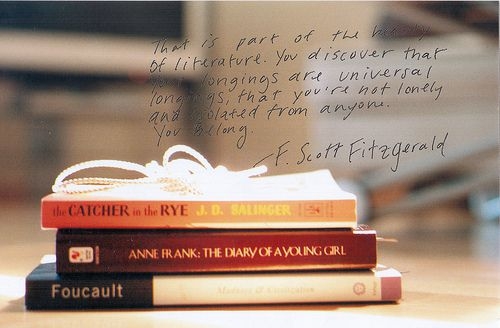 That is part of the beauty
Of literature. You discover that
your longings are universal
longings, that you're not lonely
and isolated from anyone.
You belong.
— F. Scott Fitzgerald
the CATCHER in the RYE J. D. SALINGER
ANNE FRANK: THE DIARY OF A YOUNG GIRL
Foucault Madness & Civilization